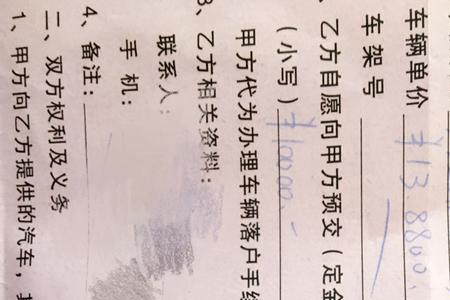 车辆单价 ¥13.8800.
车架号
、乙方自愿向甲方预交（定金
（小写）¥10000.-
甲方代为办理车辆落户手续
3、乙方相关资料：
联系人：
手机：
4、备注：
二、双方权利及义务
1、甲方向乙方提供的汽车，其